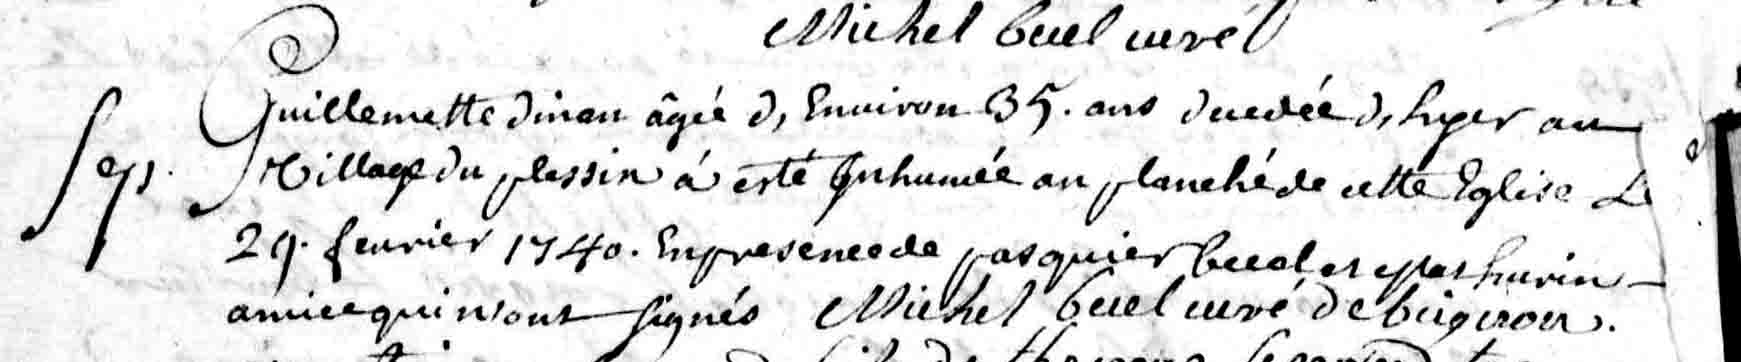 Michel buel curé
Guillemette dinan âgée d, Environ 35. ans decedée d, hyer au
Sep. Village du plessix á esté Inhumée au planché de cette Eglise Le
29. feuvrier 1740. En presence de pasquier buel et Mathurin
amice qui n'ont signés Michel buel curé de